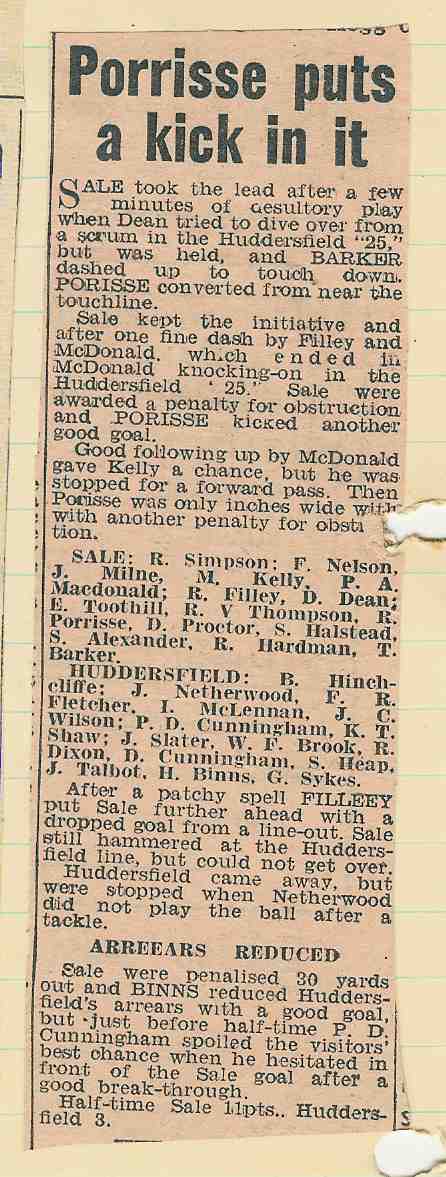 Porrisse puts
a kick in it
SALE took the lead after a few
minutes of desultory play
when Dean tried to dive over from
a scrum in the Huddersfield "25,"
but was held, and BARKER
dashed up to touch down.
PORISSE converted from near the
touchline.
Sale kept the initiative and
after one fine dash by Filley and
McDonald, which ended in
McDonald knocking-on in the
Huddersfield ' 25." Sale were
awarded a penalty for obstruction
and PORISSE kicked another
good goal.
Good following up by McDonald
gave Kelly a chance, but he was
stopped for a forward pass. Then
Porisse was only inches wide with
with another penalty for obstr
tion.
SALE: R. Simpson; F. Nelson,
J. Milne, M. Kelly, P. A.
Macdonald; R. Filley, D. Dean;
E. Toothill, R. V Thompson, R.
Porrisse, D. Proctor, S. Halstead,
S. Alexander, R. Hardman, T.
Barker.
HUDDERSFIELD: B. Hinch-
cliffe; J. Netherwood, F. R.
Fletcher, I. McLennan, J. C.
Wilson; P. D. Cunningham, K. T.
Shaw; J. Slater, W. F. Brook, R.
Dixon, D. Cunningham, S. Heap,
J. Talbot, H. Binns, G. Sykes.
After a patchy spell FILLEEY
put Sale further ahead with a
dropped goal from a line-out. Sale
still hammered at the Hudders-
field line, but could not get over.
Huddersfield came away, but
were stopped when Netherwood
did not play the ball after a
tackle.
ARREEARS REDUCED
Sale were penalised 30 yards
out and BINNS reduced Hudders-
field's arrears with a good goal,
but just before half-time P. D.
Cunningham spoiled the visitors'
best chance when he hesitated in
front of the Sale goal after a
good break-through.
Half-time Sale 11pts.. Hudders-
field 3.